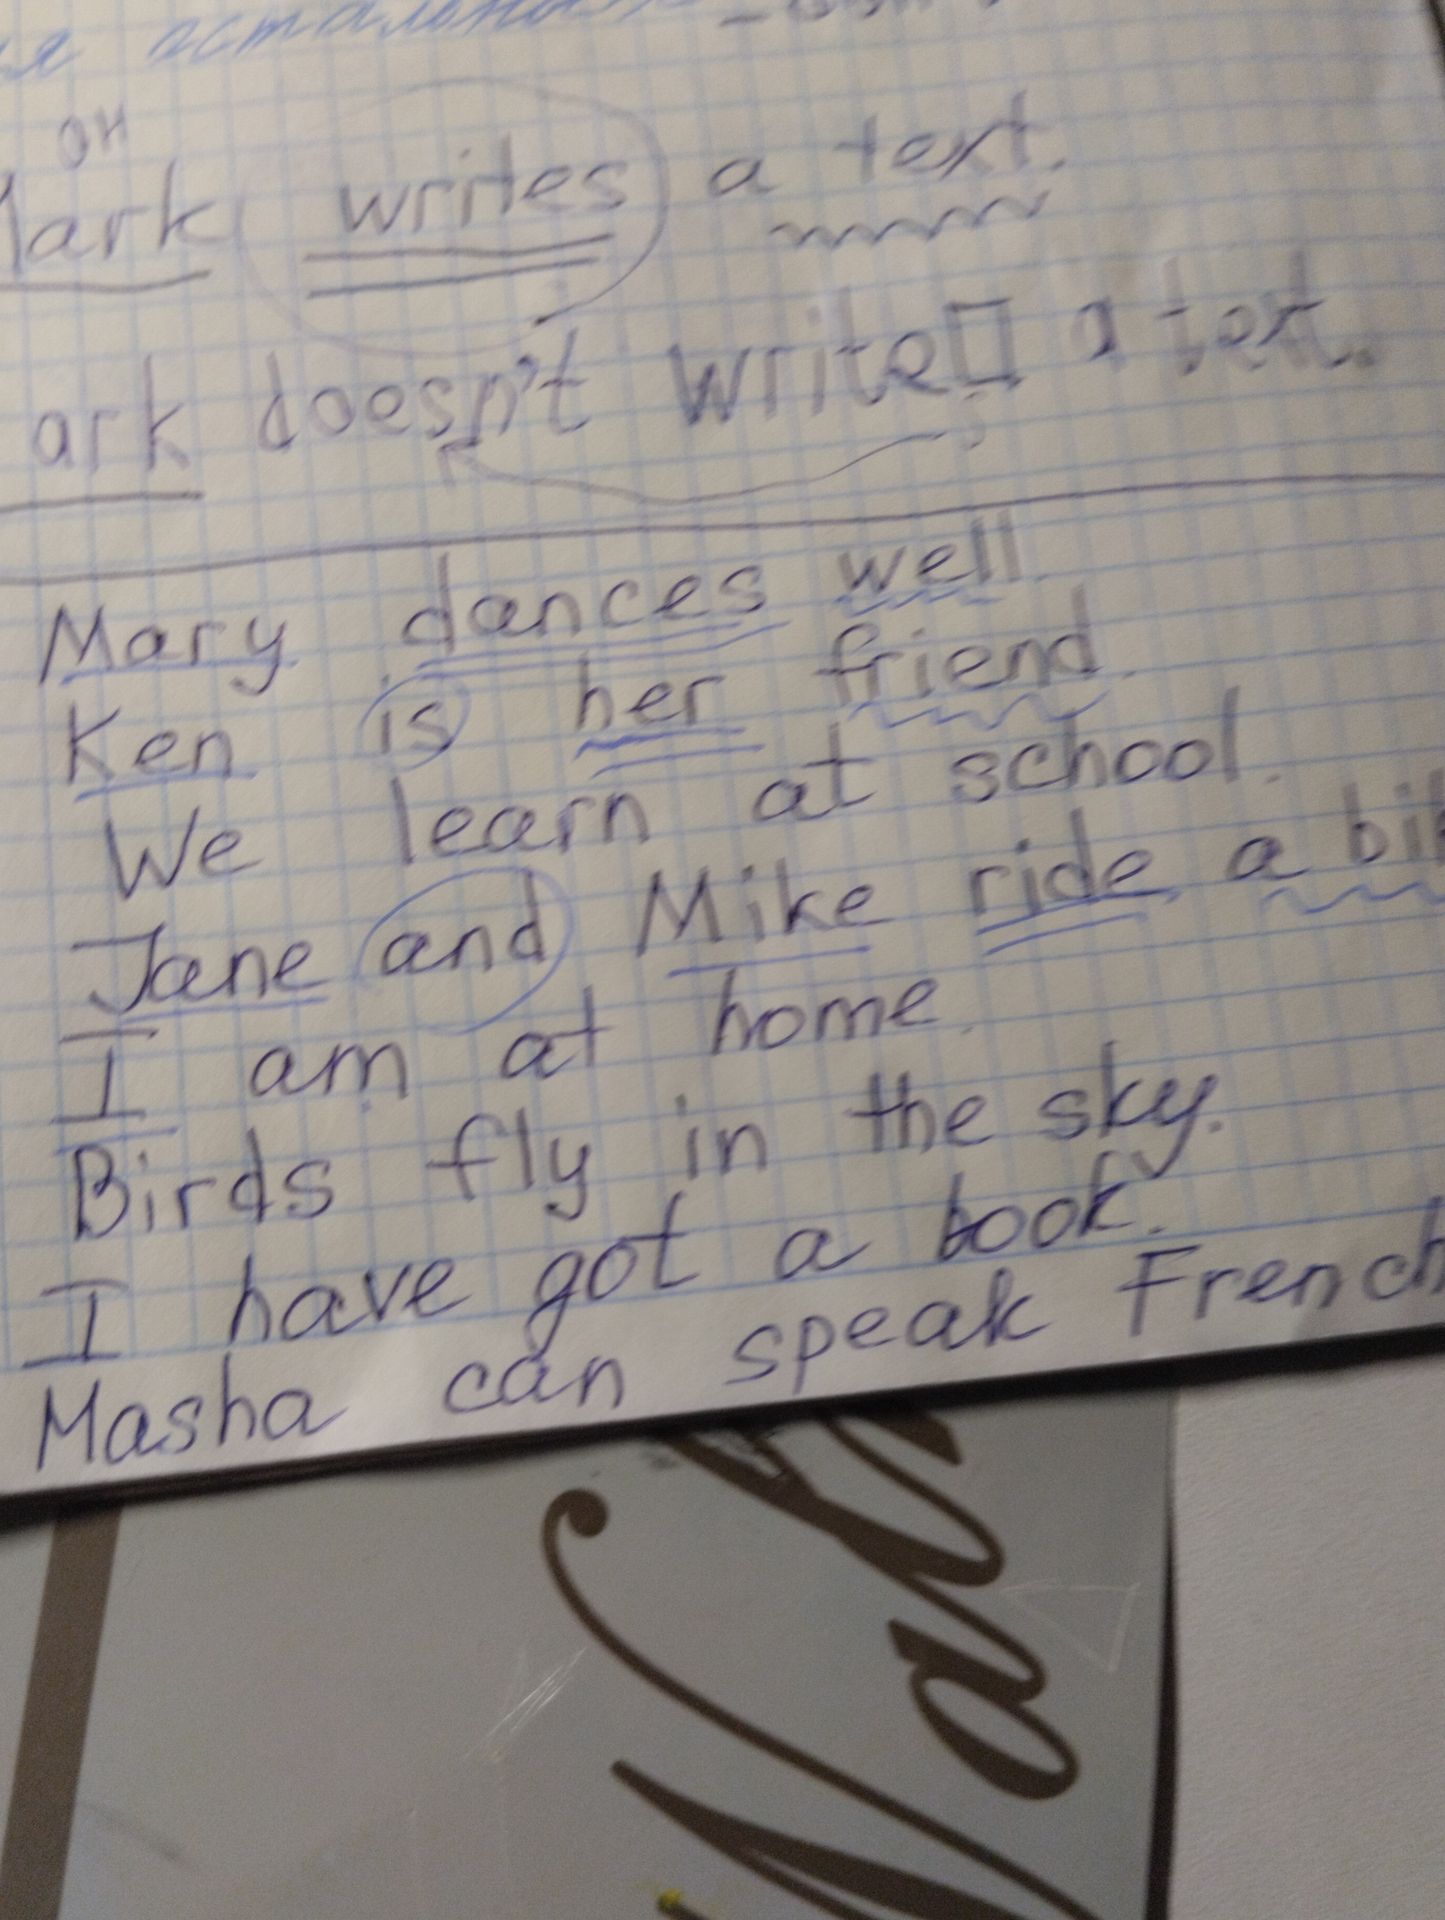 он
writes a text.
ark doesn't write a text.
Mary dances well
Ken is her friend.
We learn at school.
Jane and Mike ride a
I am at home.
Birds fly in the sky.
I have got a book.
Masha can speak French